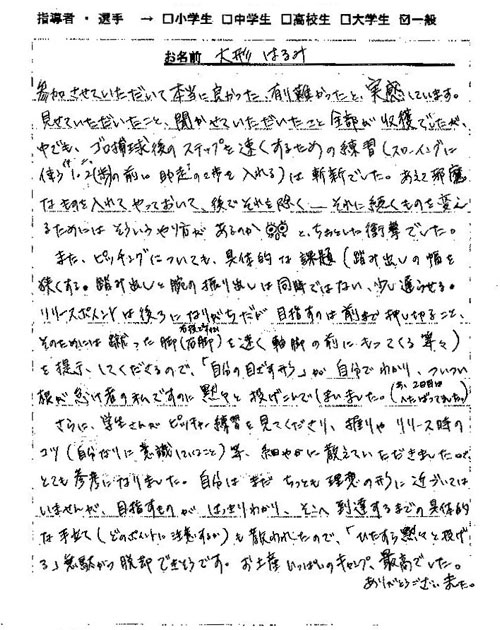 指導者・選手 → □小学生 □中学生 □高校生 □大学生 ☑一般
お名前 大形 はるみ
参加させていただいて本当に良かった、有り難かったと、実感しています。
見せていただいたこと、聞かせていただいたこと全部が収穫でしたが、
中でも、ゴロ捕球後のステップを速くするための練習(スローイングに
伴う1、2(歩)の前に助走の2歩を入れる)は斬新でした。あえて邪魔
なものを入れてやっておいて、後でそれを除く―それに続くものを変え
るためにはそういうやり方があるのか!!と、ちょっとした衝撃でした。
また、ピッチングについても、具体的な課題(踏み出しの幅を
狭くする。踏み出しと腕の振り出しは同時ではない、少し遅らせる。
リリースポイントは後ろになりがちだが目指すのは前まで押し切ること、
そのためには蹴った脚(右投げなら右脚)を速く軸脚の前にもってくる 等々)
を提示してくださるので、「自分の目ざす形」が自分でわかり、ついつい
根が怠け者の私ですのに黙々と投げこんでしまいました。(あ、2日目は
へたばってましたっ)
さらに、学生さんがピッチャー練習を見てくださり、握りやリリース時の
コツ(自分なりに意識していること)等、細やかに教えていただきましたのも
とても参考になりました。自分はまだちっとも理想の形に近づいては
いませんが、目指すものがはっきりわかり、そこへ到達するまでの具体的
な手立て(どのポイントに注意するか)も教われたので、「ひたすら黙々と投げ
る」無駄がら脱却できそうです。お土産いっぱいのキャンプ、最高でした。
ありがとうございました。